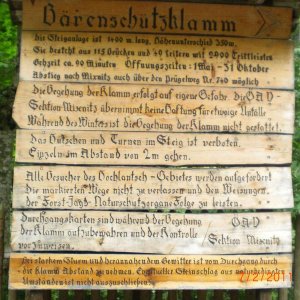 Bärenschützklamm
Die Steiganlage ist 1400 m. lang. Höhenunterschied 350m.
Sie besteht aus 115 Brücken und 49 leitern mit 2800 Trittleisten
Gehzeit ca. 90 Minuten Öffnungszeiten: 1.Mai - 31 Oktober
Abstieg nach Mixnitz auch über den Prügelweg Nr. 740 möglich
Die Begehung der Klamm erfolgt auf eigene Gefahr. die ÖAV
Sektion Mixnitz übernimmt keine Haftung für etwaige Unfälle
Während des Winters ist die Begehung der Klamm nicht gestattet.
Das Hutschen und Turnen im Steig ist verboten.
Einzeln im Abstand von 2m gehen.
Alle Besucher des Hochlantsch - Gebietes werden aufgefordert
Die markierten Wege nicht zu verlassen und den Weisungen
der Forst-Jagd- Naturschutzorgane Folge zu leisten.
Durchgangskarten sind während der Begehung ÖAV
der Klamm aufzubewahren und der Kontrolle
vorzuweisen. Sektion Mixnitz
Bei starkem Sturm und herannahendem Gewitter ist vom Durchgang durch
die Klamm Abstand zu nehmen. Ernsthafter Steinschlag aus
Umständen ist nicht auszuschließen
2/2011